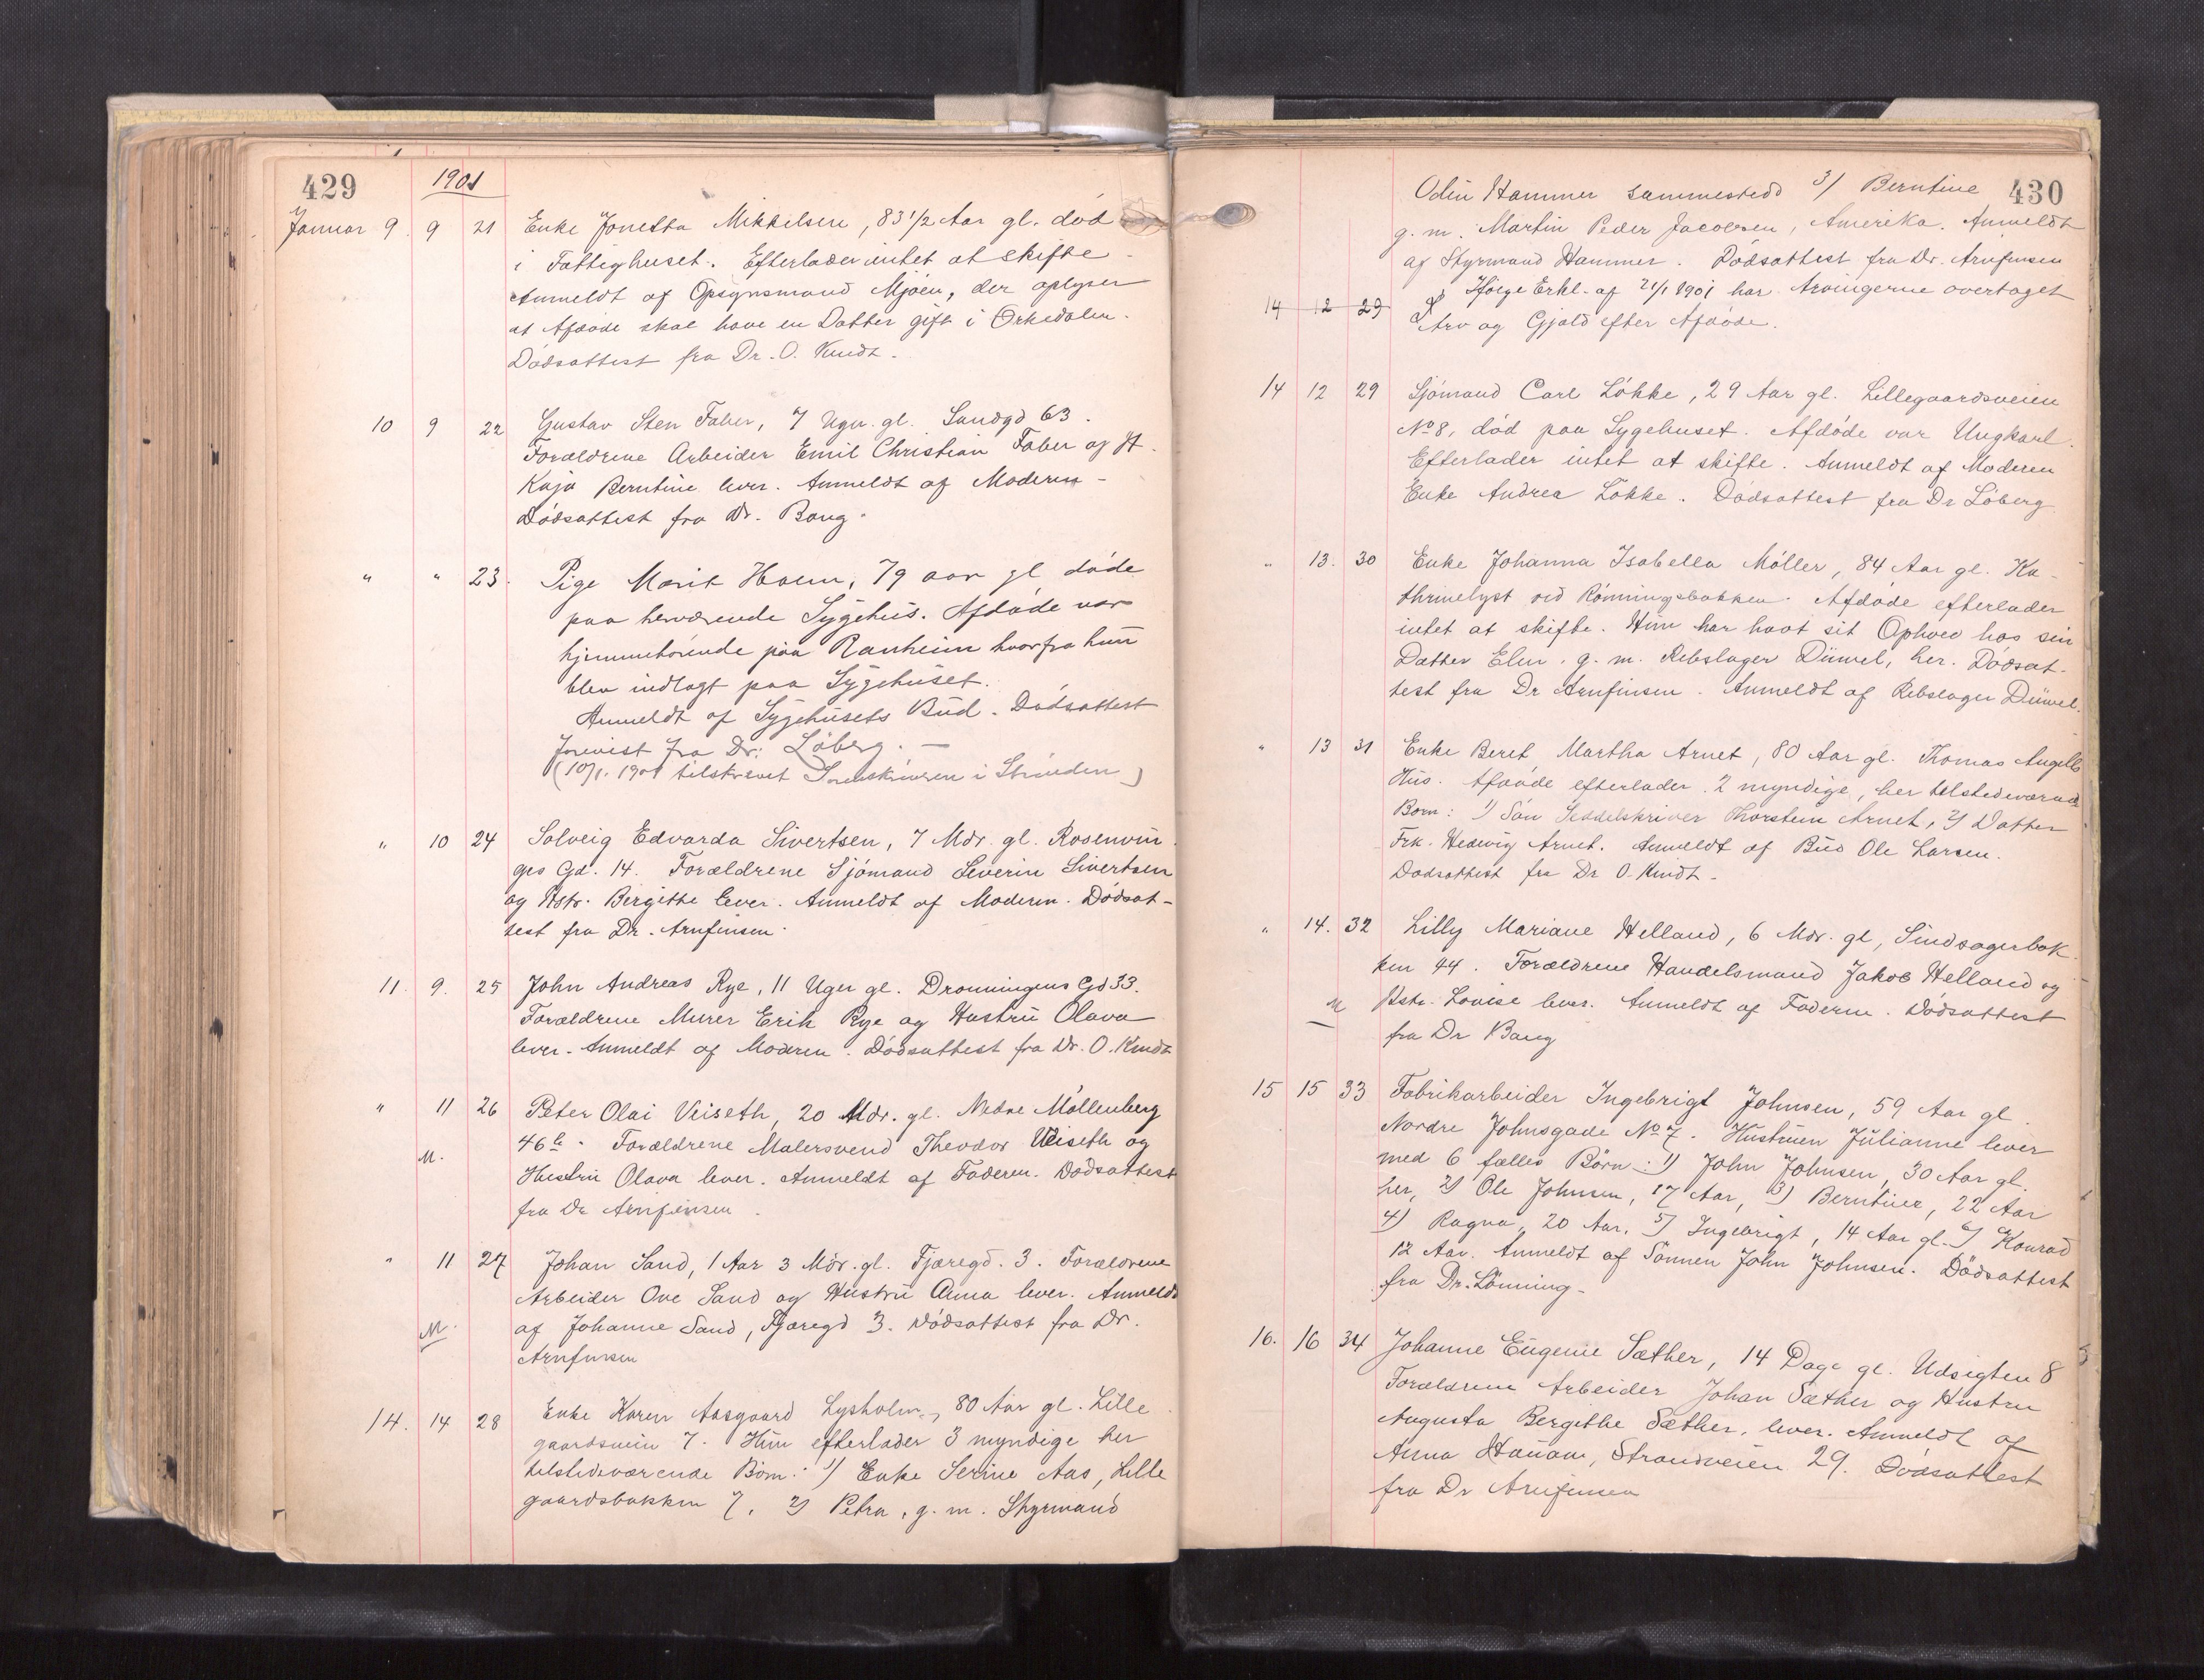 429
1901
Januar 9. 9 21 Enke Jonetta Mikkelsen, 83 1/2 Aar gl. død
i Fattighuset. Efterlader intet at skifte.
Anmeldt af Opsynsmand Mjøen, der oplyser
at Afdøde skal have en Datter gift i Orkedalen.
Dødsattest fra Dr. O. Kindt.
10 9 22 Gustav Sten Faber, 7 Ugr. gl. Sandgd 63.
Forældrene Arbeider Emil Christian Faber og H.
Kaja Berntine lever. Anmeldt af Moderen -
Dødsattest fra Dr. Bang.
" " 23. Pige Marit Haun, 79 aar gl døde
paa herværende Sygehus. Afdøde var
hjemmehørende paa Ranheim hvorfra hun
blev indlagt paa Sygehuset.
Anmeldt af Sygehusets Bud. Dødsattest
forevist fra Dr: Løberg. -
(10/1. 1901 tilskrevet Sorenskriveren i Strinden)
" 10 24 Solveig Edvarda Sivertsen, 7 Mdr. gl. Rosenvin
ges Gd. 14. Forældrene Sjømand Severin Sivertsen
og Hstr. Bergitte lever. Anmeldt af Moderen. Dødsat-
test fra Dr. Arnfinsen.
11. 9. 25 John Andreas Rye, 11 Uger gl. Dronningens Gd 33.
Forældrene Murer Erik Rye og Hustru Olava
lever. Anmeldt af Moderen. Dødsattest fra Dr. O. Kindt
" 11 26 Peter Olai Veiseth, 20 Mdr. gl. Nedre Møllenberg
46 b. Forældrene Malersvend Theodor Veiseth og
M.
Hustru Olava lever. Anmeldt af Faderen. Dødsattest
fra Dr Arnfinsen.
" 11 27 Johan Sand, 1 Aar 3 Mdr. gl. Fjæregd. 3. Forældrene
Arbeider Ove Sand og Hustru Anna lever. Anmeldt
M. af Johanne Sand, Fjæregd 3. Dødsattest fra Dr.
Arnfinsen
14. 14 28 Enke Karen Aasgaard Lysholm, 80 Aar gl. Lille
gaardsveien 7. Hun efterlader 3 myndige her
tilstedeværende Børn: 1) Enke Serine Aas, Lille
gaardsbakken 7, 2) Petra, g. m. Styrmand
430
Odin Hammer sammesteds 3) Berntine
g. m. Martin Peder Jacobsen, Amerika. Anmeldt
af Styrmand Hammer. Dødsattest fra Dr. Arnfinsen
Ifølge Erkl. af 21/1 1901 har Arvingerne overtaget
14 12 29 Arv og Gjæld efter Afdøde.
14 12 29 Sjømand Carl Løkke, 29 Aar gl. Lillegaardsveien
No 8, død paa Sygehuset. Afdøde var Ungkarl.
Efterlader intet at skifte. Anmeldt af Moderen
Enke Andrea Løkke. Dødsattest fra Dr Løberg
" 13. 30 Enke Johanna Isabella Møller, 84 Aar gl. Ka-
thrinelyst ved Rønningsbakken. Afdøde efterlader
intet at skifte. Hun har havt sit Ophold hos sin
Datter Elen, g. m. Rebslager Düwel, her. Dødsat-
test fra Dr Arnfinsen. Anmeldt af Rebslager Düwel.
" 13 31 Enke Beret Martha Arnet, 80 Aar gl. Thomas Angells
Hus. Afdøde efterlader 2 myndige, her tilstedeværende
Børn: 1) Søn Seddelskriver Thorstein Arnet, 2) Datter
Frk. Hedevig Arnet. Anmeldt af Bud Ole Larsen.
Dødsattest fra Dr O. Kindt.
" 14. 32 Lilly Mariane Helland, 6 Mdr. gl, Sindsagerbak
ken 44. Forældrene Handelsmand Jakob Helland og
M Hstr. Lovise lever. Anmeldt af Faderen. Dødsattest
fra Dr Bang
15 15 33 Fabrikarbeider Ingebrigt Johnsen, 59 Aar gl
Nordre Johnsgade No 7. Hustruen Julianne lever
med 6 fælles Børn: 1) John Johnsen, 30 Aar gl.
her, 2) Ole Johnsen, 17 Aar, 3) Berntine, 22 Aar
4) Ragna, 20 Aar, 5) Ingebrigt, 14 Aar gl. 6) Konrad
12 Aar. Anmeldt af Sønnen John Johnsen. Dødsattest
fra Dr. Lønning.
16. 16 34 Johanne Eugenie Sæther, 14 Dage gl. Udsigten 8
Forældrene Arbeider Johan Sæther og Hustru
Augusta Bergithe Sæther, lever. Anmeldt af
Anna Haūam, Strandveien 29. Dødsattest
fra Dr Arnfinsen